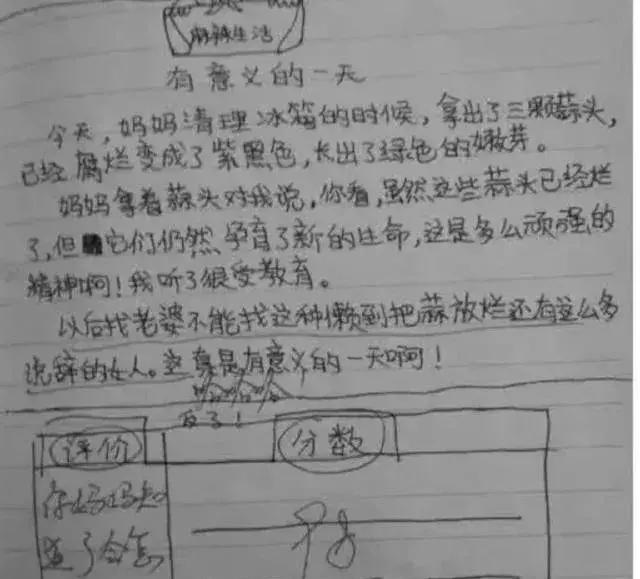 麻辣生活
有意义的一天
今天，妈妈清理冰箱的时候，拿出了三颗蒜头，
已经腐烂变成了紫黑色，长出了绿色的嫩芽。
妈妈拿着蒜头对我说，你看，虽然这些蒜头已经烂
了，但它们仍然孕育了新的生命，这是多么顽强的
精神啊！我听了很受教育。
以后找老婆不能找这种懒到把蒜放烂还有这么多
说辞的女人。这真是有意义的一天啊！
哈哈哈
反了！
评价
分数
你妈妈知
道了会怎